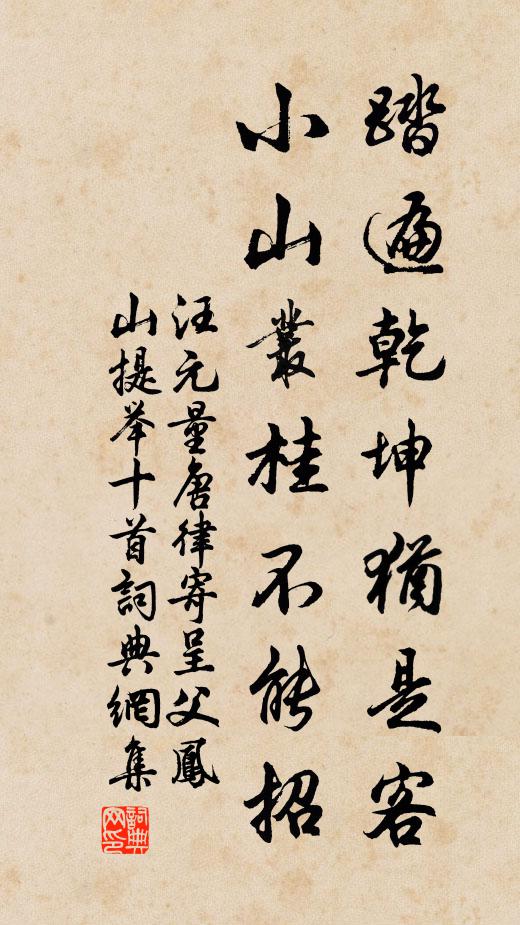 踏遍乾坤猶是客
小山叢桂不能招
汪元量唐律寄呈父鳳
山提举十首詞典網集
詞典网印